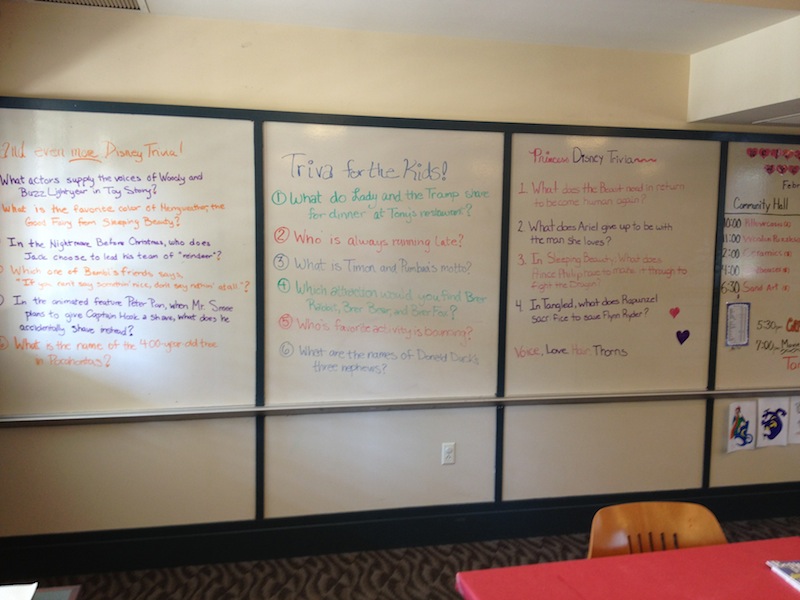 And even more Disney Trivia!
What actors supply the voices of Woody and
Buzz Lightyear in Toy Story?
What is the favorite color of Merryweather, the
Good Fairy from Sleeping Beauty?
In the Nightmare Before Christmas, who does
Jack choose to lead his team of "reindeer"?
Which one of Bambi's friends says,
"If you can't say somethin' nice, don't say nothin' at all"?
In the animated feature Peter Pan, when Mr. Smee
plans to give Captain Hook a shave, what does he
accidentally shave instead?
What is the name of the 400-year-old tree
in Pocahontas?
Triva for the Kids!
1 What do Lady and the Tramp share
for dinner at Tony's restaurant?
2 Who is always running late?
3 What is Timon and Pumbaa's motto?
4 Which attraction would you find Brer
Rabbit, Brer Bear and Brer Fox?
5 Who's favorite activity is bouncing?
6 What are the names of Donald Duck's
three nephews?
Princess Disney Trivia
1. What does the Beast need in return
to become human again?
2. What does Ariel give up to be with
the man she loves?
3. In Sleeping Beauty, what does
Prince Philip have to make it through to
fight the Dragon?
4. In Tangled, what does Rapunzel
sacrifice to save Flynn Ryder?
Voice, Love Hair Thorns
Febr
Community Hall
10:00
11:00
2:00 Ceramics
4:00
6:30 Sand Art
5:30pm
7:00pm